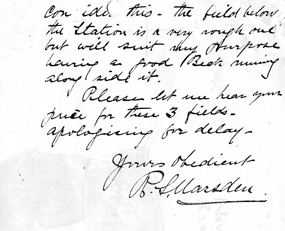 con ide this - the field below
the Station is a very rough one
but will suit my purpose
having a good Beck running
along side it.
Please let me hear your
price for these 3 fields -
apologising for delay -
Yours Obedient
R. S. Marsden.